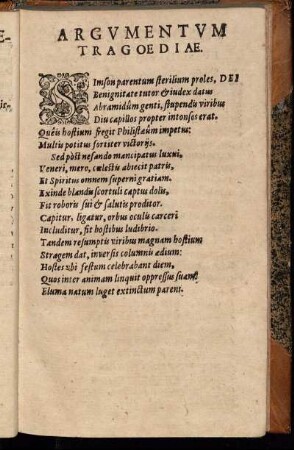 ARGVMENTVM
TRAGOEDIAE.
SImson parentum sterilium proles, DEI
Benignitate tutor & iudex datus
Abramidûm genti, stupendis viribus
Diu capillos propter intonsos erat.
Quêis hostium fregit Philistaûm impetus:
Multis potitus fortiter victorijs.
Sed pòst nefando mancipatus luxui,
Veneri, mero, cælestis abiecit patris,
Et Spiritus omnem superni gratiam.
Exinde blandis scortuli captus dolis,
Fit roboris sui & salutis proditor.
Capitur, ligatur, orbus oculis carceri
Includitur, fit hostibus ludibrio.
Tandem resumptis viribus magnam hostium
Stragem dat, inuersis columnis ædium:
Hostes vbi festum celebrabant diem,
Quos inter animam linquit oppressus suam
Eluma natum luget extinctum parent.